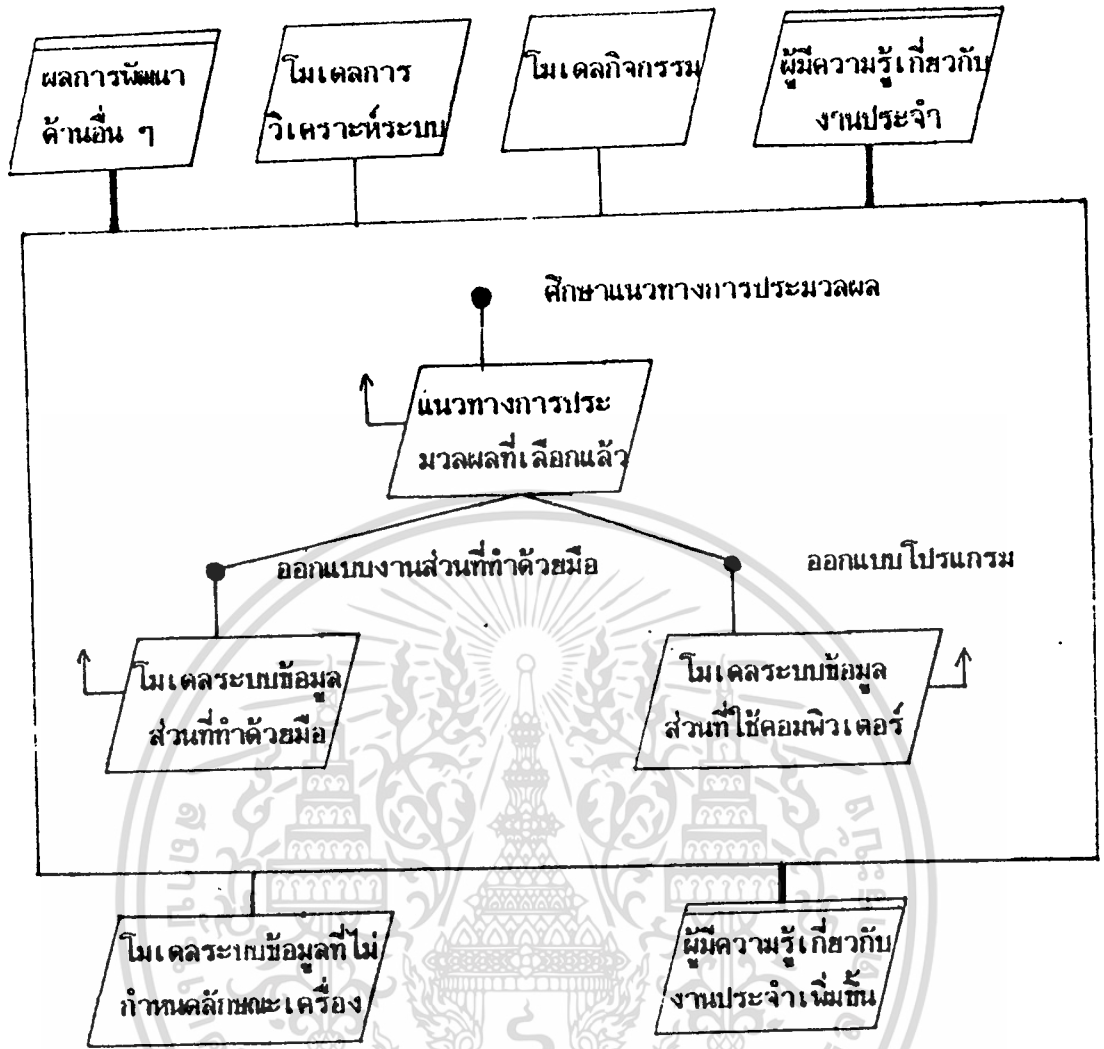 ผลการพัฒนา
ด้านอื่น ๆ
โมเดลการ
วิเคราะห์ระบบ
โมเดลกิจกรรม
ผู้มีความรู้เกี่ยวกับ
งานประจำ
ศึกษาแนวทางการประมวลผล
แนวทางการประ
มวลผลที่เลือกแล้ว
ออกแบบงานส่วนที่ทำด้วยมือ
ออกแบบโปรแกรม
โมเดลระบบข้อมูล
ส่วนที่ทำด้วยมือ
โมเดลระบบข้อมูล
ส่วนที่ใช้คอมพิวเตอร์
โมเดลระบบข้อมูลที่ไม่
กำหนดลักษณะเครื่อง
ผู้มีความรู้เกี่ยวกับ
งานประจำเพิ่มขึ้น